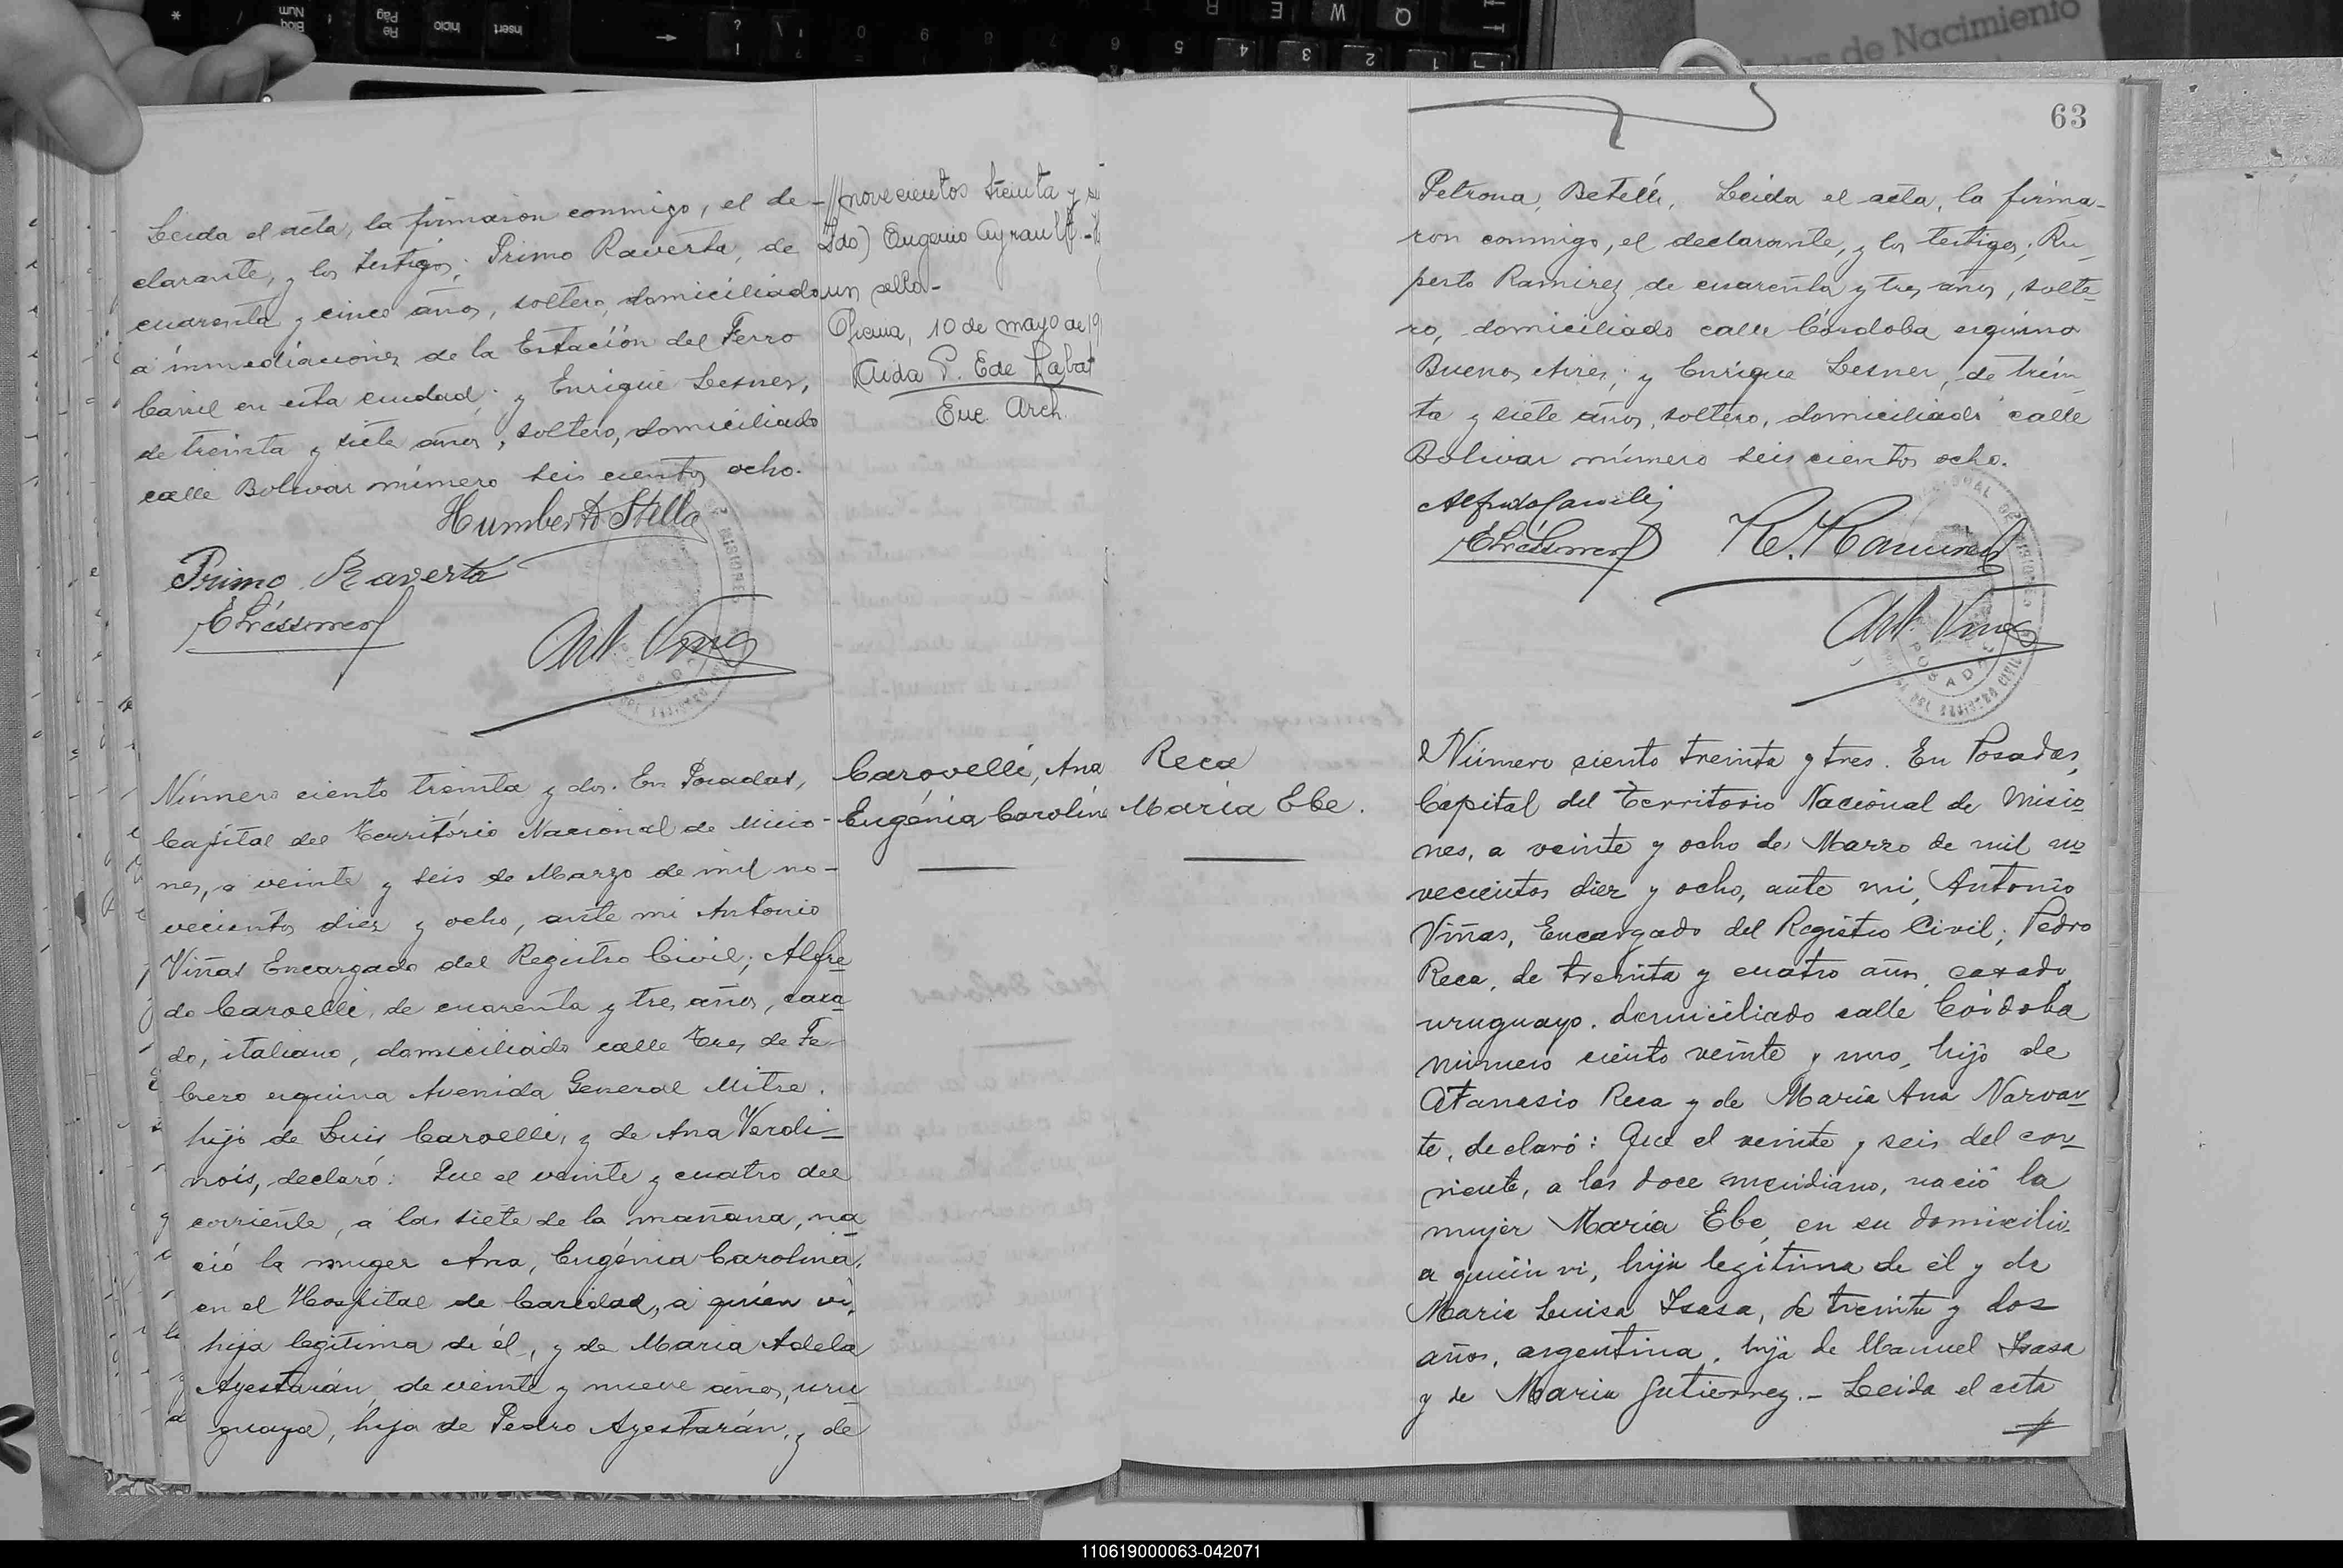 Leida el acta, la firmaron conmigo, el de-
clarante, y los testigos; Primo Raverta, de
cuarenta y cinco años, soltero, domiciliado
a inmediaciones de la Estación del Ferro
Carril en esta ciudad; y Enrique Lesner,
de treinta y siete años, soltero, domiciliado
calle Bolivar número seis cientos ocho.
Humberto Stella
Primo Raverta
Art. Vinas
//novecientos treinta y
Fdo) Eugenio Ayrault.-
un sello-
Oficina, 10 de mayo de 19
Aida P. E de Labat
Enc. Arch.
Número ciento treinta y dos. En Posadas,
Capital del Território Nacional de Misio-
nes, a veinte y seis de Marzo de mil no-
vecientos diez y ocho, ante mi Antonio
Viñas Encargado del Registro Civil; Alfre
do Carvelli, de cuarenta y tres años, casa
do, italiano, domiciliado calle Tres de Fe-
brero esquina Avenida General Mitre.
hijo de Luis Carvelli, y de Ana Verdi-
nois, declaró: Que el veinte y cuatro del
corriente, a las siete de la mañana, na
ció la muger Ana, Eugénia Carolina,
en el Hospital de Caridad, a quién vi,
hija legítima de él, y de Maria Adela
Ayestarán, de veinte y nueve años, uru
guaya, hija de Pedro Ayestarán, y de
Carovelli, Ana
Eugénia Carolin
63
Petrona, Betelli, Leida el acta, la firma-
ron conmigo, el declarante, y los testigos; Ru-
perto Ramirez, de cuarenta y tres años, solte-
ro, domiciliado calle Córdoba esquina
Buenos Aires; y Enrique Lesner, de trein
ta y siete años, soltero, domiciliado calle
Bolivar número seis cientos ocho.
R. Ramirez
Art. Vinas
POSADAS
Reca
Maria Ebe.
Número ciento treinta y tres. En Posadas,
Capital del Território Nacional de Misio
nes, a veinte y ocho de Marzo de mil no
vecientos diez y ocho, ante mi, Antonio
Viñas, Encargado del Registro Civil; Pedro
Reca, de treinta y cuatro años, casado,
uruguayo, domiciliado calle Córdoba
número ciento veinte y uno, hijo de
Atanasio Reca y de Maria Ana Narvar
te, declaró: Que el veinte y seis del cor
riente, a las doce meridiano, nació la
mujer Maria Ebe, en su domicilio.
a quién vi, hija legitima de él y de
Maria Luisa Isasa, de treinta y dos
años, argentina, hija de Manuel Isasa
y de Maria Gutierrez.- Leida el acta
//
de Nacimiento
110619000063-042071